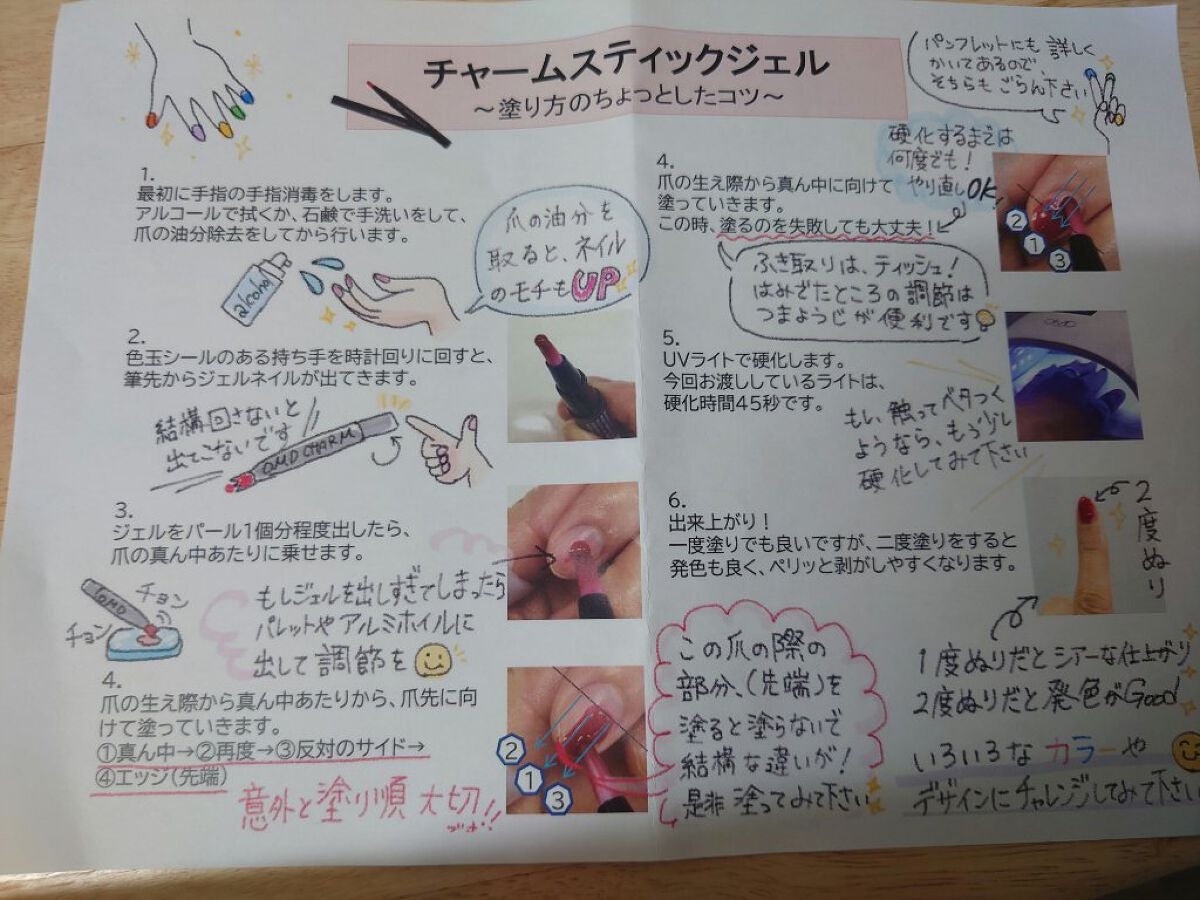 チャームスティックジェル
～塗り方のちょっとしたコツ～
パンフレットにも詳しく
かいてあるので、
そちらもごらん下さい
1.
最初に手指の手指消毒をします。
アルコールで拭くか、石鹸で手洗いをして、
爪の油分除去をしてから行います。
alcohol
爪の油分を
取ると、ネイル
のモチもUP
2.
色玉シールのある持ち手を時計回りに回すと、
筆先からジェルネイルが出てきます。
結構回さないと
出てこないです
OMD CHARM
3.
ジェルをパール1個分程度出したら、
爪の真ん中あたりに乗せます。
OMD
チョン
チョン
もしジェルを出しすぎてしまったら
パレットやアルミホイルに
出して調節を
4.
爪の生え際から真ん中あたりから、爪先に向
けて塗っていきます。
①真ん中→②再度→③反対のサイド→
④エッジ(先端)
意外と塗り順 大切!!
②
①
③
4.
爪の生え際から真ん中に向けて
塗っていきます。
この時、塗るのを失敗しても大丈夫！
硬化するまえは
何度でも!
やり直しOK!
②
①
③
ふき取りは、ティッシュ!
はみでたところの調節は
つまようじが便利です
5.
UVライトで硬化します。
今回お渡ししているライトは、
硬化時間45秒です。
もし、触ってベタつく
ようなら、もう少し
硬化してみて下さい
6.
出来上がり！
一度塗りでも良いですが、二度塗りをすると
発色も良く、ペリッと剥がしやすくなります。
2度ぬり
1度ぬりだとシアーな仕上がり
2度ぬりだと発色がGood
この爪の際の
部分、(先端)を
塗ると塗らないで
結構な違いが!
是非塗ってみて下さい
いろいろなカラーや
デザインにチャレンジしてみて下さい